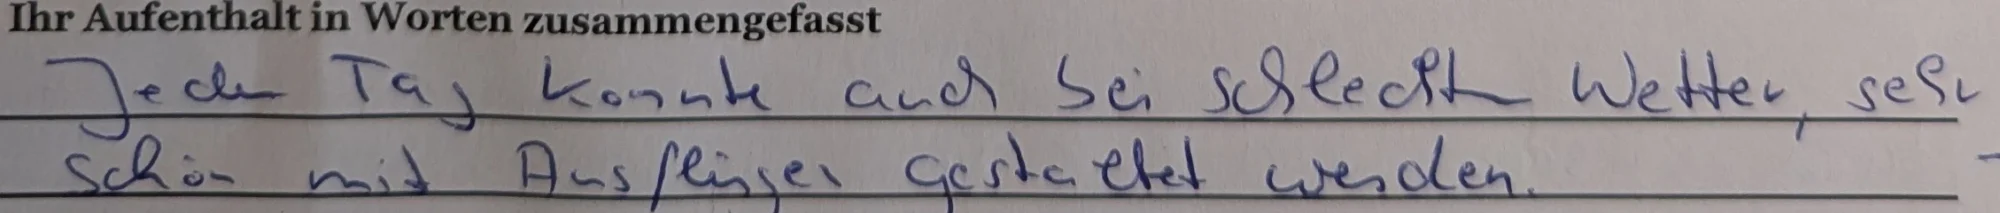 Ihr Aufenthalt in Worten zusammengefasst
Jeder Tag konnte auch bei schlecht Wetter, sehr
schön mit Ausflüger gestaltet werden.